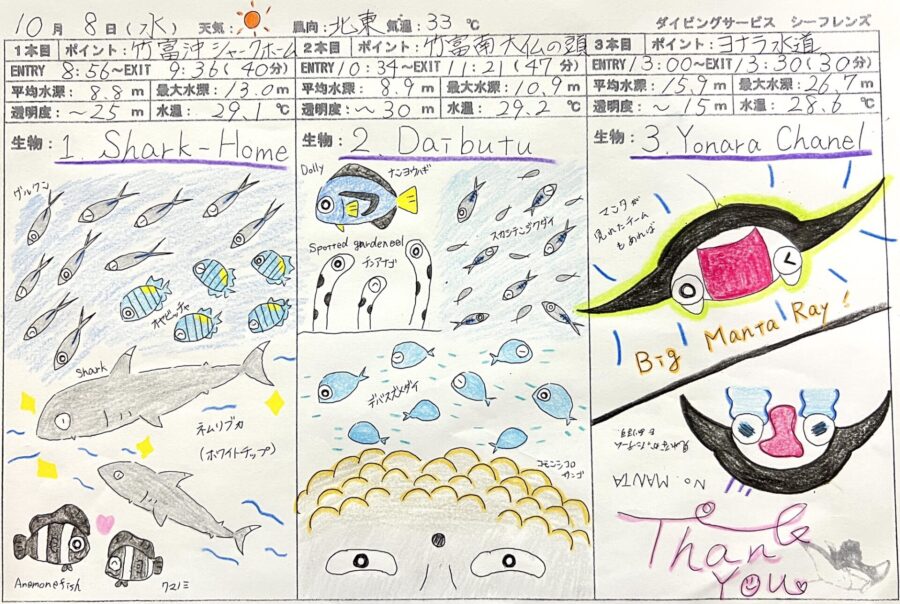 10月 8日(水) 天気: 風向:北東 気温:33 ℃ ダイビングサービス シーフレンズ
1本目 ポイント:竹富沖シャークホーム
ENTRY 8:56~EXIT 9:36(40分)
平均水深: 8.8 m 最大水深: 13.0 m
透明度: ~25 m 水温: 29.1 ℃
生物: 1. Shark-Home
グルクン
オヤビッチャ
Shark
ネムリブカ
(ホワイトチップ)
Anemonefish
クマノミ
2本目 ポイント:竹富南大仏の頭
ENTRY 10:34~EXIT 11:21(47分)
平均水深: 8.9 m 最大水深: 10.9 m
透明度: ~30 m 水温: 29.2 ℃
生物: 2. Daibutu
Dolly
ナンヨウハギ
スカシテンジクダイ
Spotted gardeneel
チンアナゴ
デバスズメダイ
コモンシコロ
サンゴ
3本目 ポイント:ヨナラ水道
ENTRY 13:00~EXIT 13:30(30分)
平均水深: 15.9 m 最大水深: 26.7 m
透明度: ~15 m 水温: 28.6 ℃
生物: 3. Yonara Chanel
マンタが
見れたチーム
もあれば
Big Manta Ray!
見れなかったチーム
もあり
No. MANTA
Thank
You